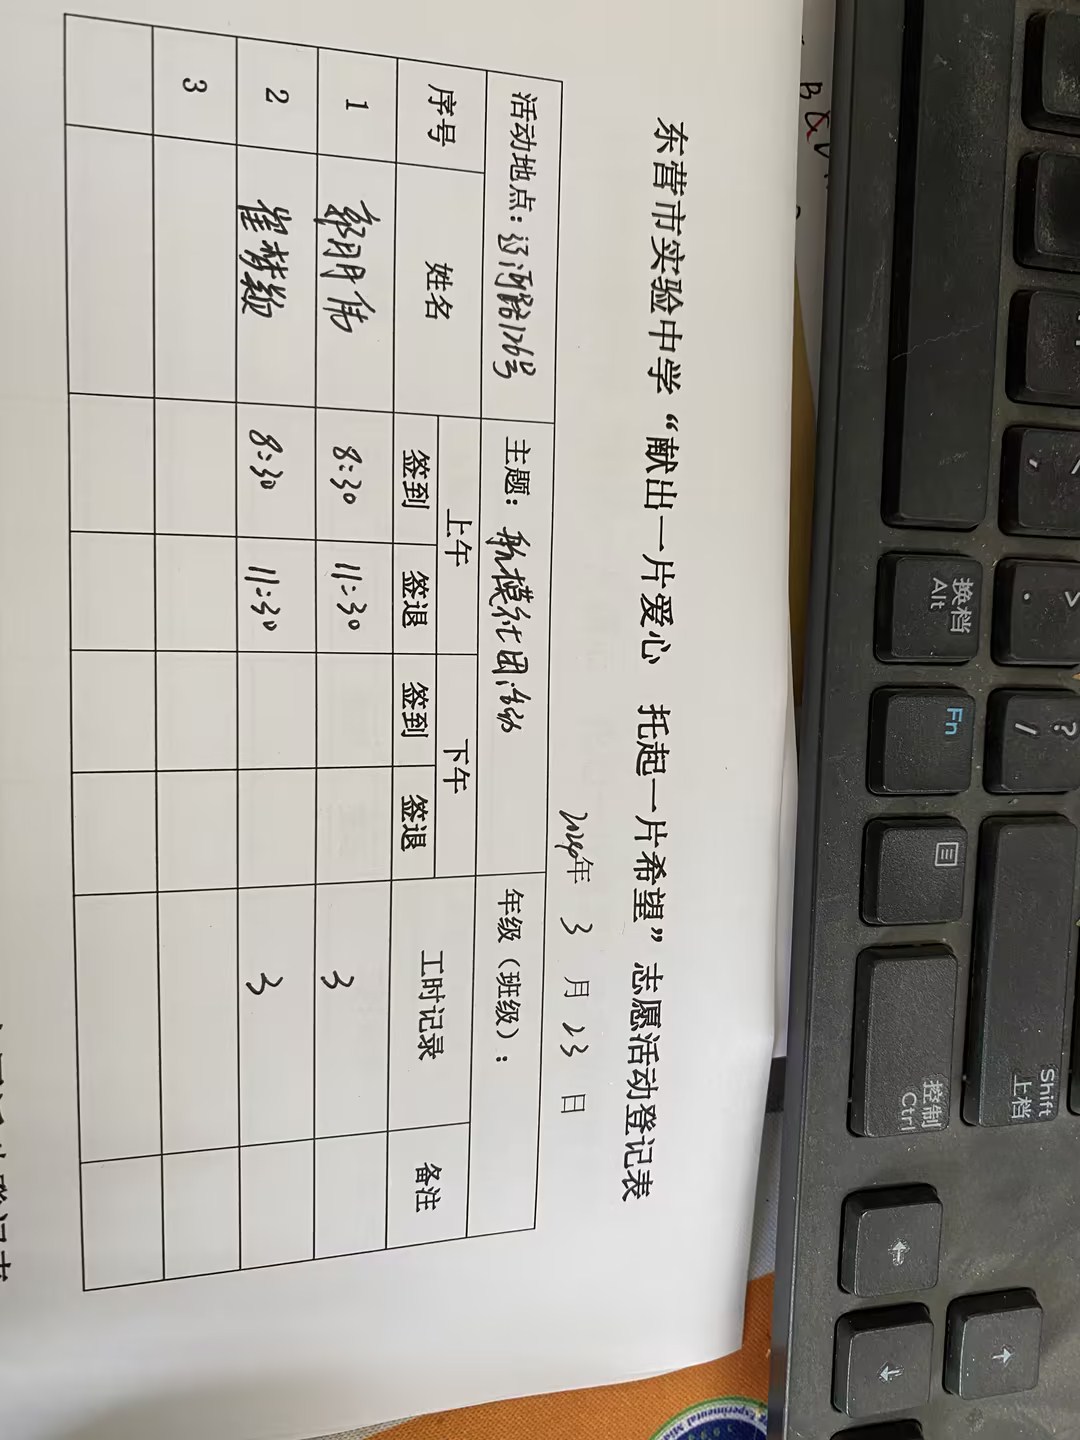 东营市实验中学“献出一片爱心 托起一片希望”志愿活动登记表
2024年 3 月 23 日
活动地点：辽河路126号 主题：航模社团活动 年级（班级）：
序号 姓名 上午 下午 工时记录 备注
签到 签退 签到 签退
1 郭月伟 8:30 11:30 3
2 崔梦颖 8:30 11:30 3
3
换档
Alt
Fn
?
/
>
.
<
,
Shift
上档
控制
Ctrl
←
↓
↑